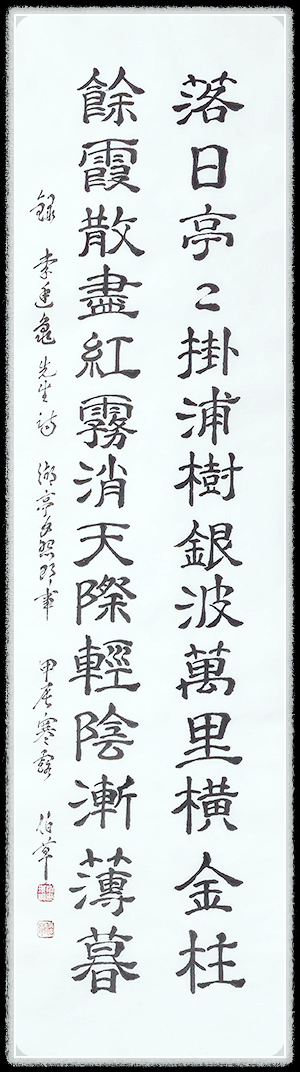 落日亭〻掛浦樹銀波萬里橫金柱
餘霞散盡紅霧消天際輕陰漸薄暮
錄 李廷龜先生詩 湖亭夕照即事 甲辰寒露 伯草